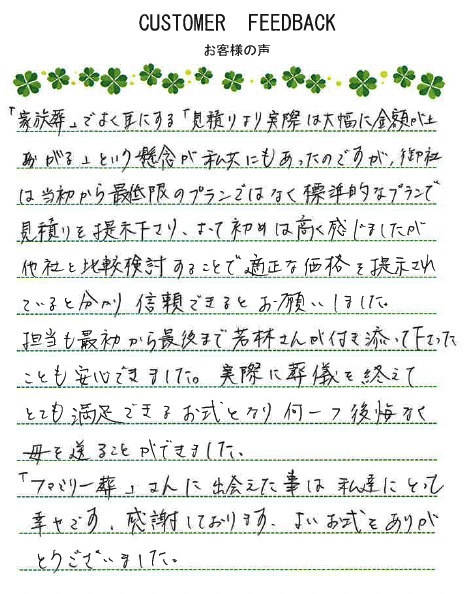 CUSTOMER FEEDBACK
お客様の声
「家族葬」でよく耳にする「見積りより実際は大幅に金額が上
あがる」という懸念が私共にもあったのですが、御社
は当初から最低限のプランではなく標準的なプランで
見積りを提示下さり、よって初めは高く感じましたが
他社と比較検討することで適正な価格を提示され
ていると分かり信頼できるとお願いしました。
担当も最初から最後まで若林さんが付き添って下さった
ことも安心できました。実際に葬儀を終えて
とても満足できるお式となり何一つ後悔なく
母を送ることができました。
「ファミリー葬」さんに出会えた事は私達にとって
幸せです。感謝しております。よいお式をありが
とうございました。